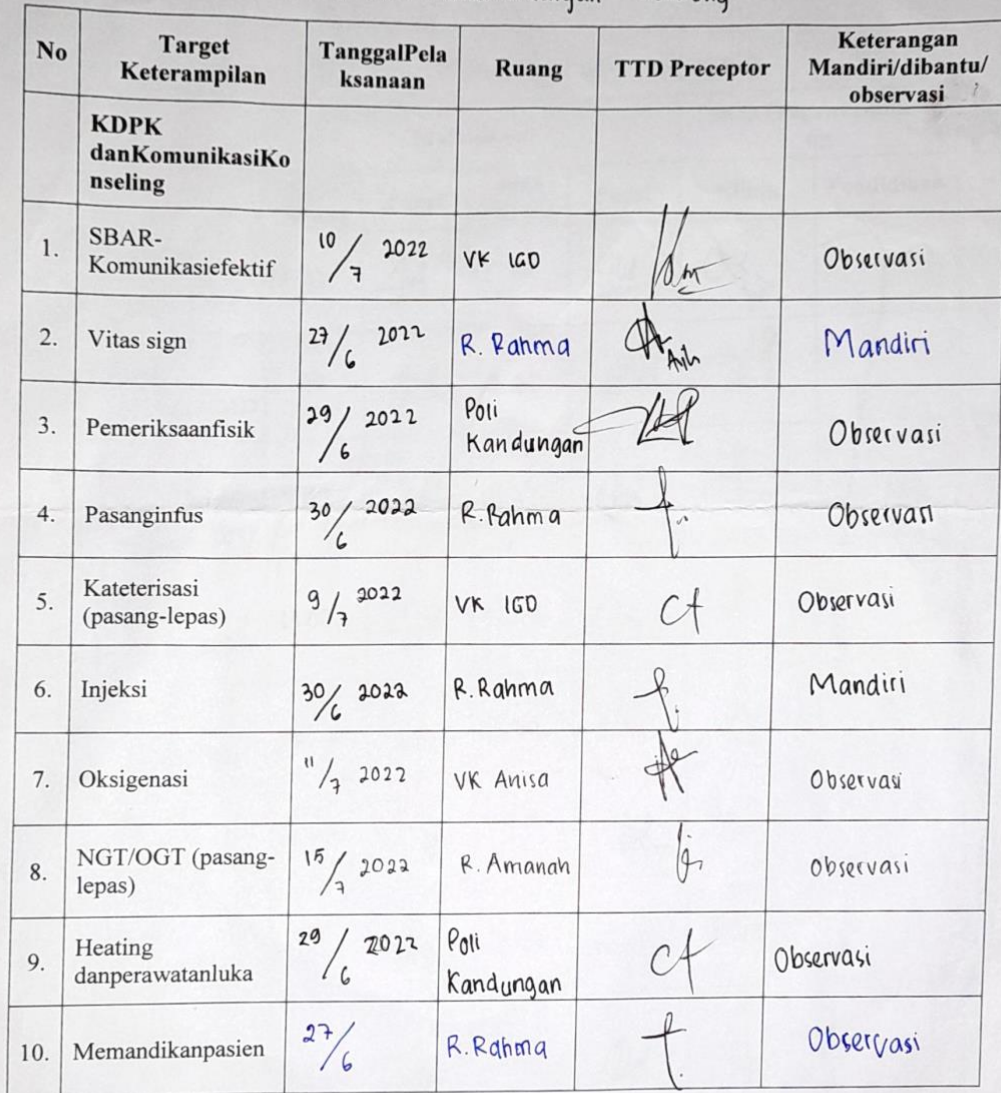 No Target Keterampilan TanggalPela ksanaan Ruang TTD Preceptor Keterangan Mandiri/dibantu/ observasi
KDPK
danKomunikasiKo
nseling
1. SBAR- Komunikasiefektif 10/7 2022 VK IGD Observasi
2. Vitas sign 27/6 2022 R. Rahma Mandiri
3. Pemeriksaanfisik 29/6 2022 Poli Kandungan Observasi
4. Pasanginfus 30/6 2022 R. Rahma Observasi
5. Kateterisasi (pasang-lepas) 9/7 2022 VK IGD Observasi
6. Injeksi 30/6 2022 R. Rahma Mandiri
7. Oksigenasi 11/7 2022 VK Anisa Observasi
8. NGT/OGT (pasang- lepas) 15/7 2022 R. Amanah Observasi
9. Heating danperawatanluka 29/6 2022 Poli Kandungan Observasi
10. Memandikanpasien 27/6 R. Rahma Observasi